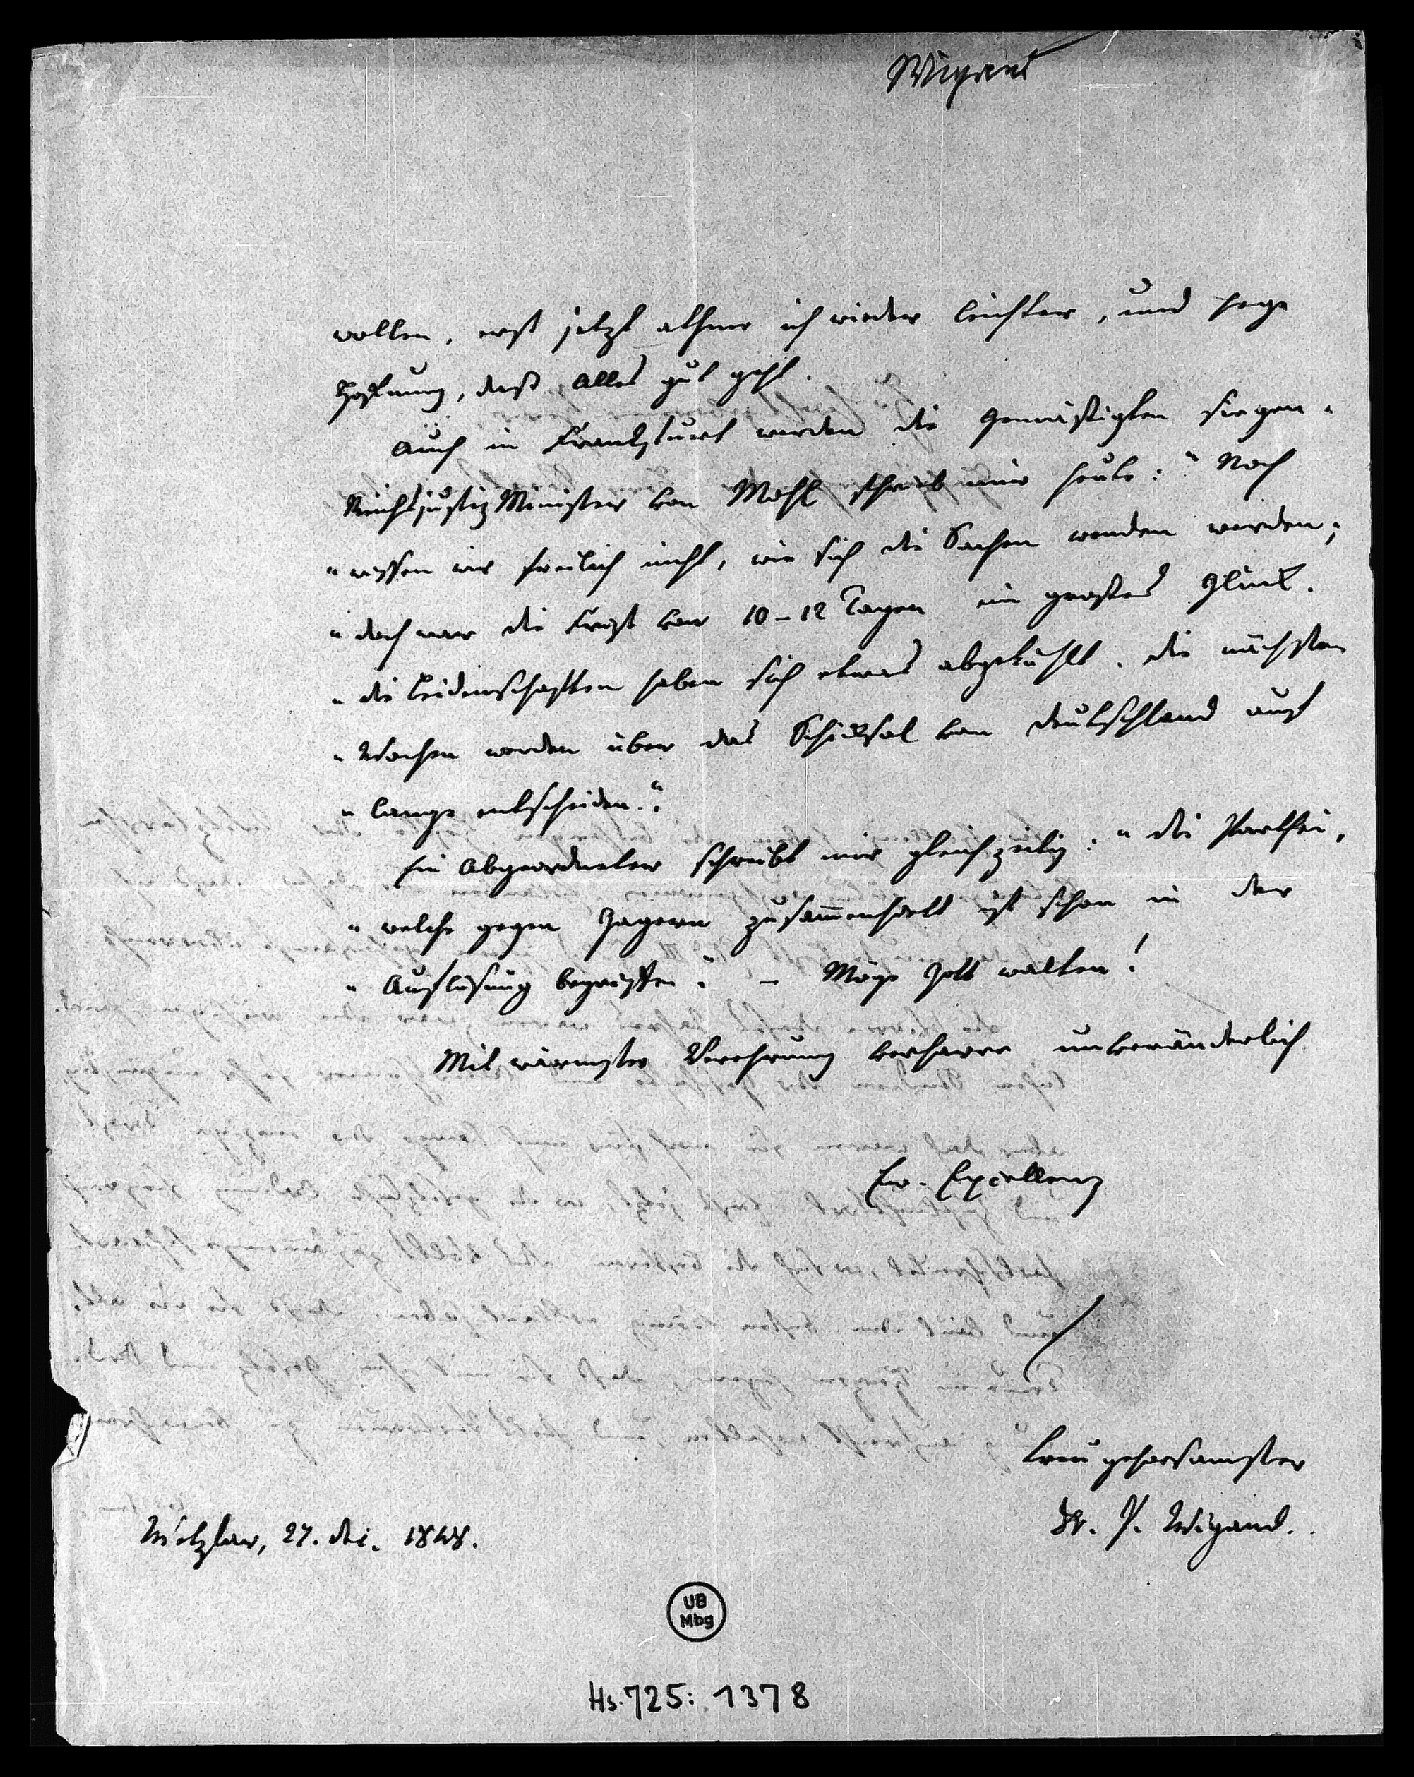 Wigand
wollen, erst jetzt athme ich wieder leichter, und hege
Hoffnung, daß Alles gut geht.
Auch in Frankfurt werden die Gemäßigten siegen.
Reichsjustiz Minister von Mohl schrieb mir heute: "Noch
"wissen wir freilich nicht, wie sich die Sachen wenden werden;
"doch war die Frist von 10-12 Tagen ein großes Glück.
"die Leidenschaften haben sich etwas abgekühlt. die nächsten
"Wochen werden über das Schicksal von Deutschland auf
"lange entscheiden."
Ein Abgeordneter schreibt mir gleichzeitig: "die Parthei,
"welche gegen Gagern zusammenhielt ist schon in der
"Auflösung begriffen." – Möge Gott walten!
Mit wärmster Verehrung verharre unveränderlich
Ew. Excellenz
treu gehorsamster
Dr. P. Wigand.
Wetzlar, 27. Dec. 1848.
UB
Mbg
Hs. 725: 1378